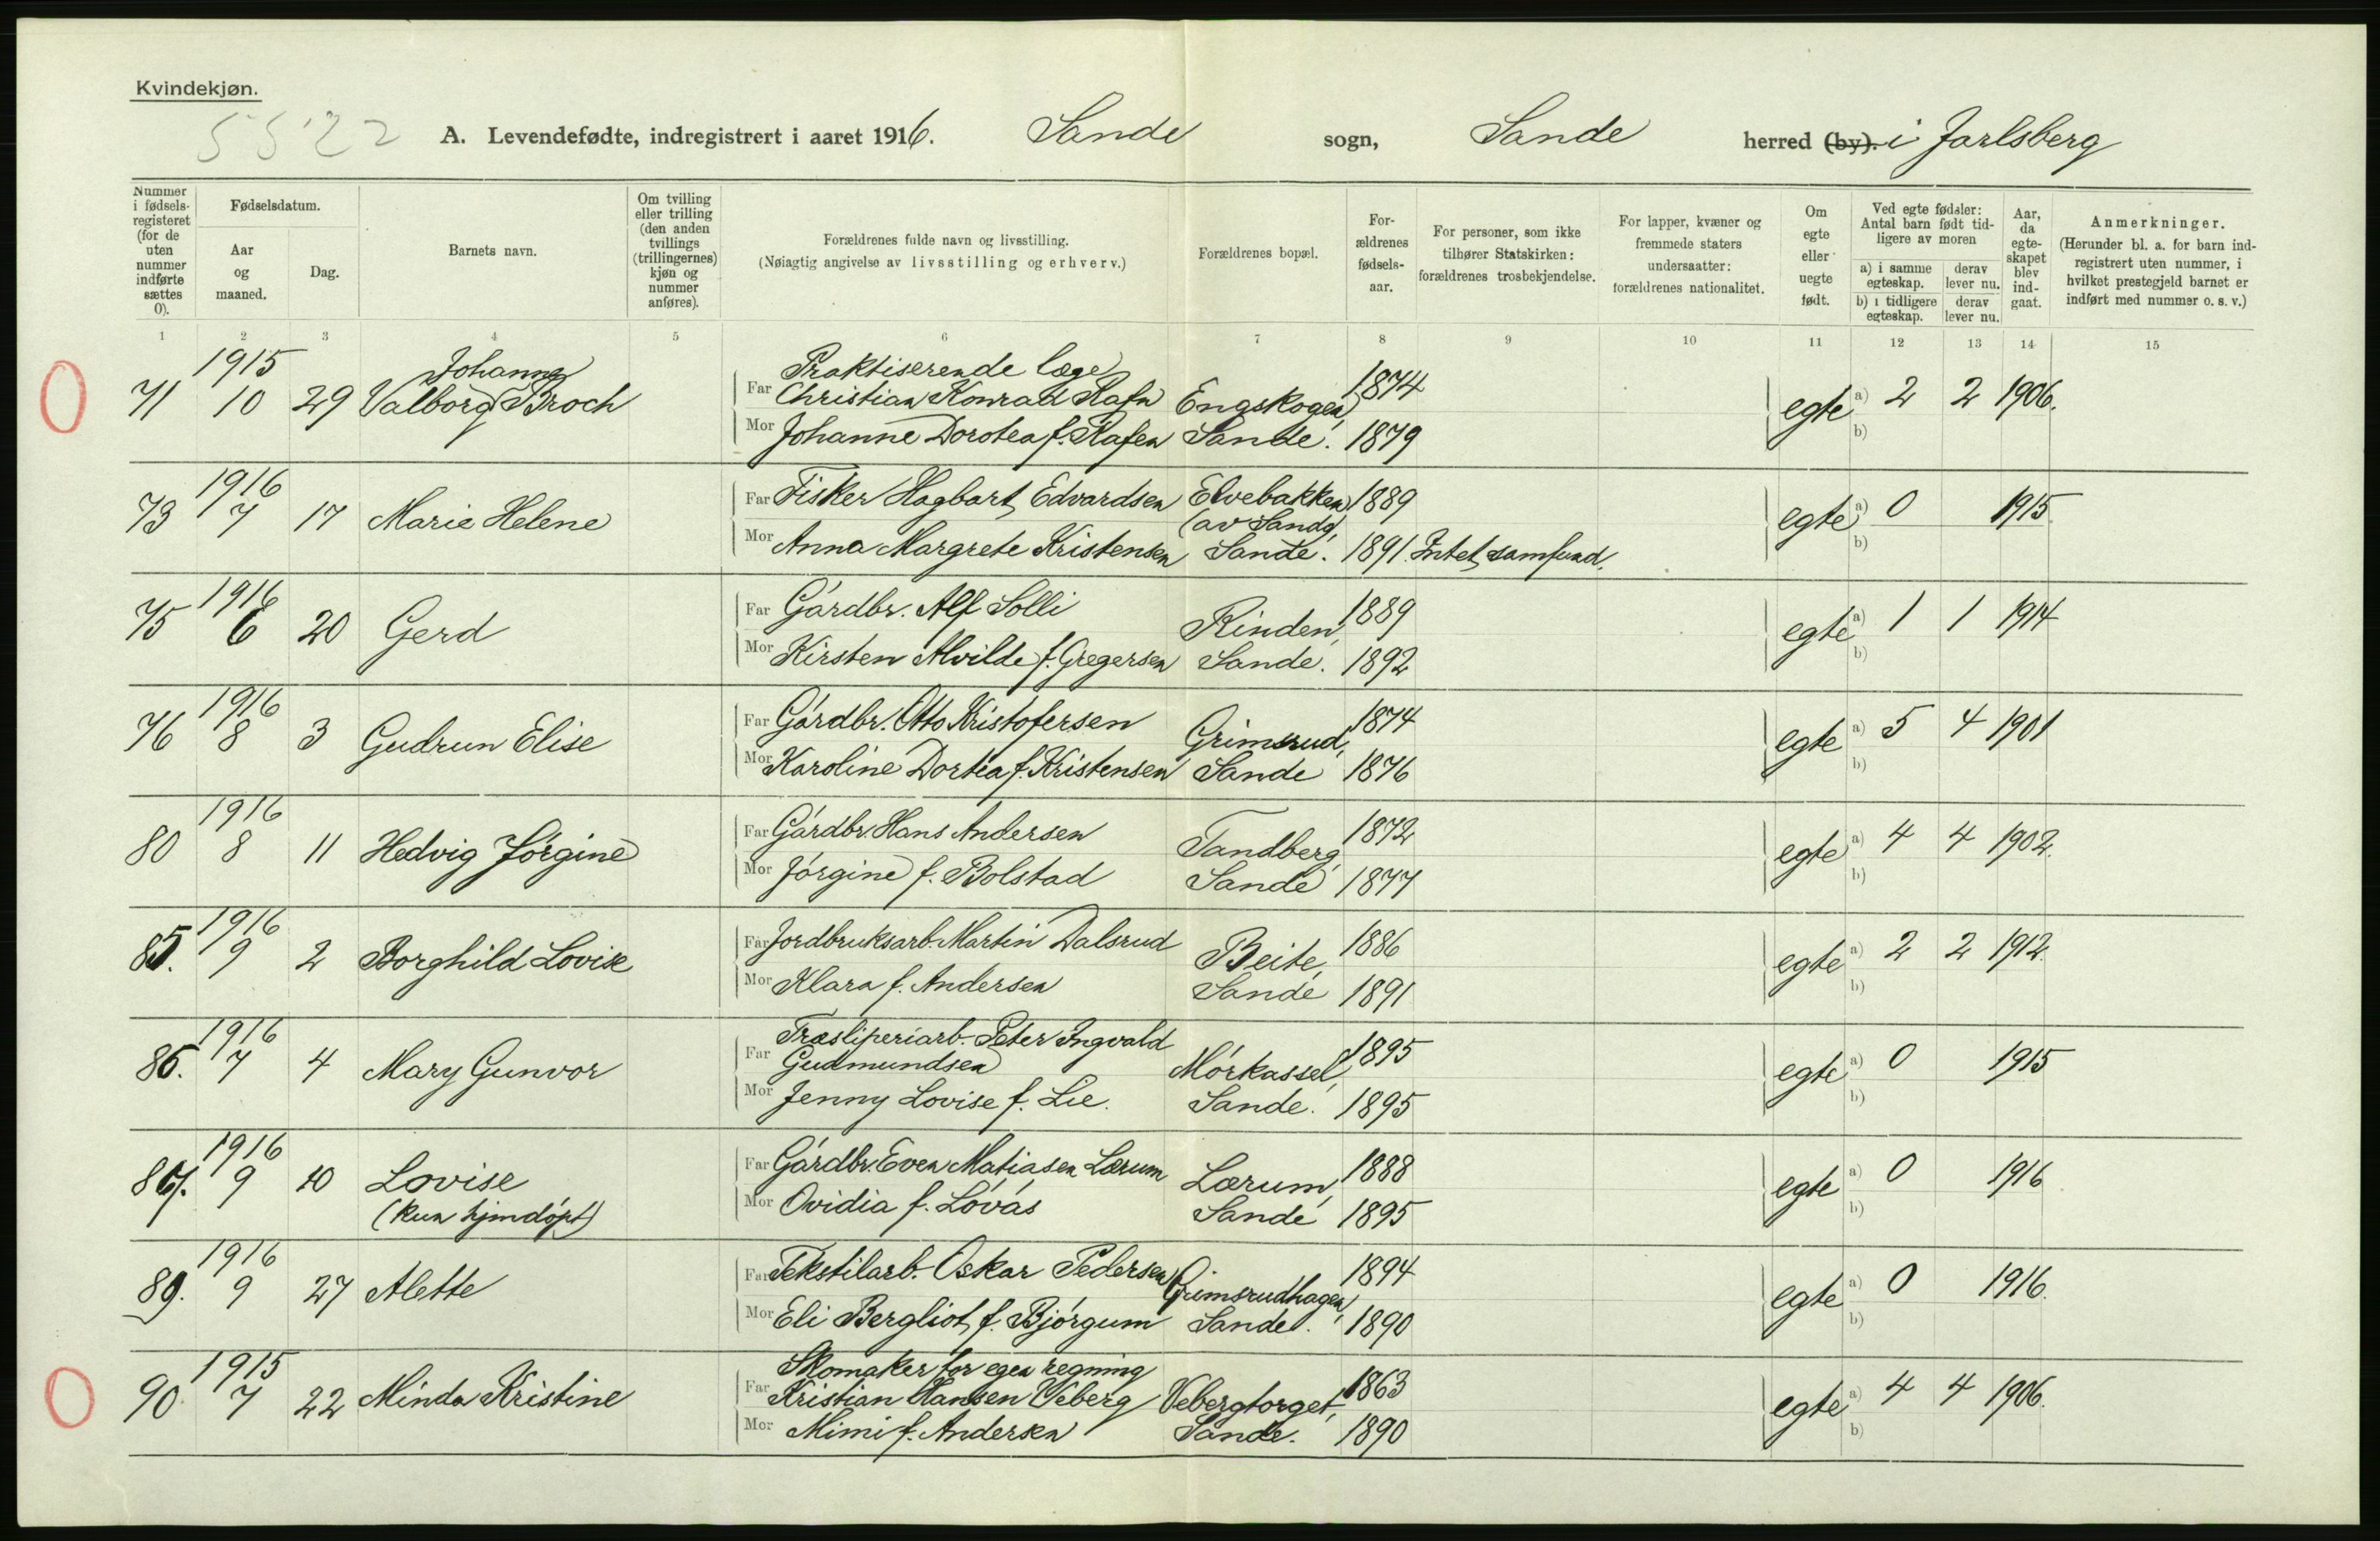 Kvindekjøn.
5522
A. Levendefødte, indregistrert i aaret 1916. Sande sogn, Sande herred (by). i Jarlsberg
Nummer i fødsels-registeret (for de uten nummer indførte sættes 0).
Fødselsdatum.
Aar og maaned.
Dag.
Barnets navn.
Om tvilling eller trilling (den anden tvillings (trillingernes) kjøn og nummer anføres).
Forældrenes fulde navn og livsstilling.
(Nøiagtig angivelse av livsstilling og erhverv.)
Forældrenes bopæl.
For-ældrenes fødsels-aar.
For personer, som ikke tilhører Statskirken: forældrenes trosbekjendelse.
For lapper, kvæner og fremmede staters undersaatter: forældrenes nationalitet.
Om egte eller uegte født.
Ved egte fødsler: Antal barn født tid-ligere av moren
a) i samme egteskap. derav lever nu.
b) i tidligere egteskap. derav lever nu.
Aar, da egte-skapet blev ind-gaat.
Anmerkninger.
(Herunder bl. a. for barn ind-registrert uten nummer, i hvilket prestegjeld barnet er indført med nummer o. s. v.)
1 2 3 4 5 6 7 8 9 10 11 12 13 14 15
1915 Johanne Praktiserende læge
71 10 29 Valborg Broch Far Christian Konrad Rafn Engskogen, 1874 egte a) 2 2 1906.
Mor Johanne Dorotea f. Rafen Sande. 1879 b)
1916 Far Fisker Hagbart Edvardsen Elvebakken 1889
73 7 17 Marie Helene (av Sand), egte a) 0 1915
Mor Anna Margrete Kristensen Sande. 1891 Intet samfund. b)
1916 Far Gårdbr. Alf Solli 1889
75 6 20 Gerd Rinden, egte a) 1 1 1914
Mor Kirsten Alvilde f. Gregersen Sande. 1892 b)
1916 Far Gårdbr. Otto Kristofersen 1874
76 8 3 Gudrun Elise Grimsrud, egte a) 5 4 1901
Mor Karoline Dortea f. Kristensen Sande 1876 b)
1916 Far Gårdbr. Hans Andersen 1872
80 8 11 Hedvig Jórgine Tandberg, egte a) 4 4 1902.
Mor Jórgine f. Bolstad Sande 1877 b)
1916 Far Jordbruksarb. Martin Dalsrud 1886
85. 9 2 Borghild Lovise Beite, egte a) 2 2 1912.
Mor Klara f. Andersen Sande 1891 b)
1916 Træsliperiarb. Peter Ingvald
86. 7 4 Mary Gunvor Far Gudmundsen Mórkassel, 1895 egte a) 0 1915
Mor Jenny Lovise f. Lie. Sande. 1895 b)
1916 Far Gårdbr. Even Matiasen Lærum 1888
87. 9 10 Lovise Lærum, egte a) 0 1916
(kun hjmdópt) Mor Ovidia f. Lóvás Sande 1895 b)
1916 Far Tekstilarb. Oskar Pedersen 1894
89. 9 27 Alette Grimsrudhagen, egte a) 0 1916.
Mor Eli Bergliot f. Bjórgum Sande. 1890 b)
1915 Skomaker for egen regning
90. 7 22 Minda Kristine Far Kristian Hansen Veberg Vebergtorget, 1863 egte a) 4 4 1906.
Mor Mimi f. Andersen Sande. 1890 b)